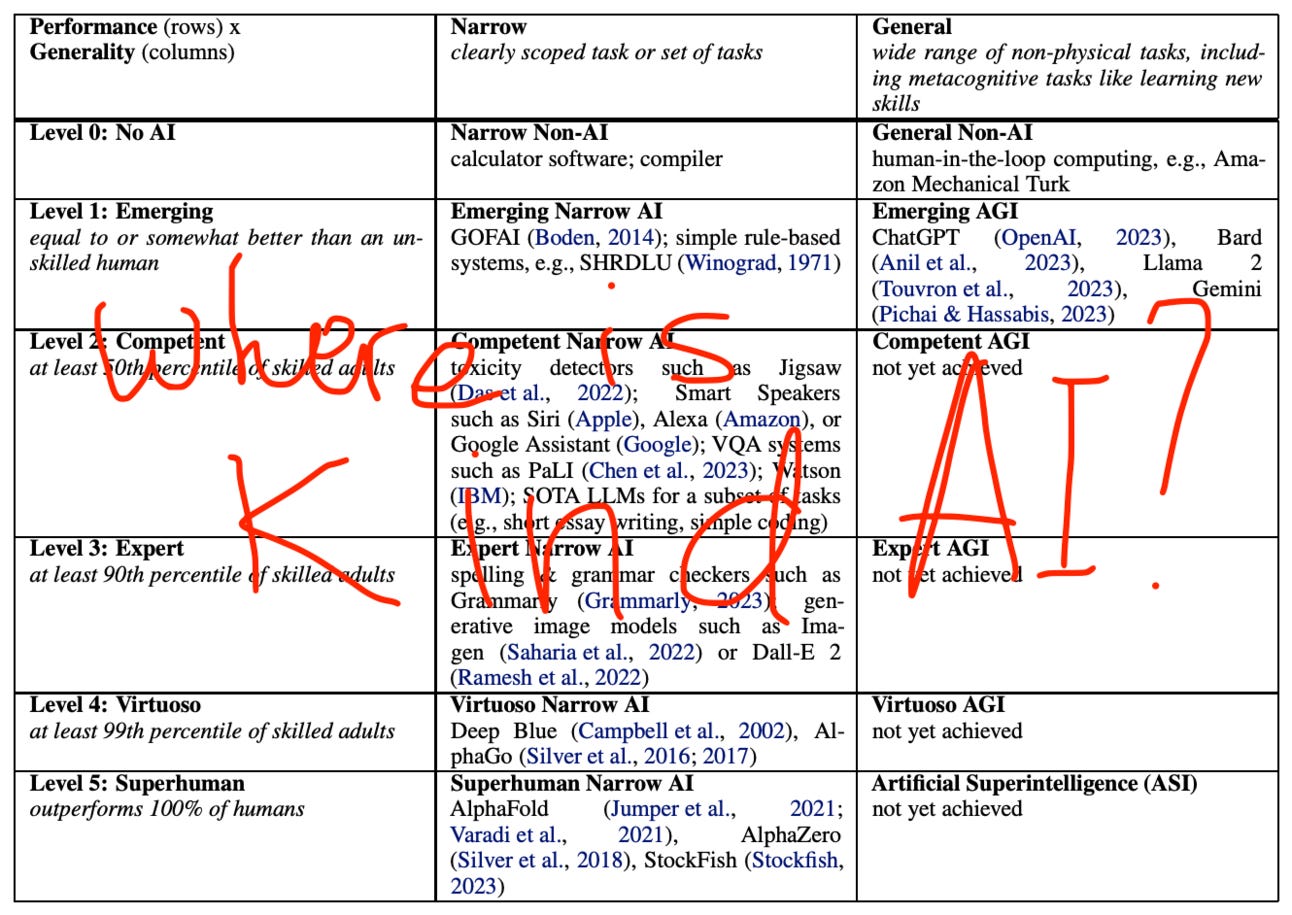 Performance (rows) x
Generality (columns)
Narrow
clearly scoped task or set of tasks
General
wide range of non-physical tasks, includ-
ing metacognitive tasks like learning new
skills
Level 0: No AI
Narrow Non-AI
calculator software; compiler
General Non-AI
human-in-the-loop computing, e.g., Ama-
zon Mechanical Turk
Level 1: Emerging
equal to or somewhat better than an un-
skilled human
Emerging Narrow AI
GOFAI (Boden, 2014); simple rule-based
systems, e.g., SHRDLU (Winograd, 1971)
Emerging AGI
ChatGPT (OpenAI, 2023), Bard
(Anil et al., 2023), Llama 2
(Touvron et al., 2023), Gemini
(Pichai & Hassabis, 2023)
Level 2: Competent
at least 50th percentile of skilled adults
Competent Narrow AI
toxicity detectors such as Jigsaw
(Das et al., 2022); Smart Speakers
such as Siri (Apple), Alexa (Amazon), or
Google Assistant (Google); VQA systems
such as PaLI (Chen et al., 2023); Watson
(IBM); SOTA LLMs for a subset of tasks
(e.g., short essay writing, simple coding)
Competent AGI
not yet achieved
Level 3: Expert
at least 90th percentile of skilled adults
Expert Narrow AI
spelling & grammar checkers such as
Grammarly (Grammarly, 2023); gen-
erative image models such as Ima-
gen (Saharia et al., 2022) or Dall-E 2
(Ramesh et al., 2022)
Expert AGI
not yet achieved
Level 4: Virtuoso
at least 99th percentile of skilled adults
Virtuoso Narrow AI
Deep Blue (Campbell et al., 2002), Al-
phaGo (Silver et al., 2016; 2017)
Virtuoso AGI
not yet achieved
Level 5: Superhuman
outperforms 100% of humans
Superhuman Narrow AI
AlphaFold (Jumper et al., 2021;
Varadi et al., 2021), AlphaZero
(Silver et al., 2018), StockFish (Stockfish,
2023)
Artificial Superintelligence (ASI)
not yet achieved
where is
Kind AI?